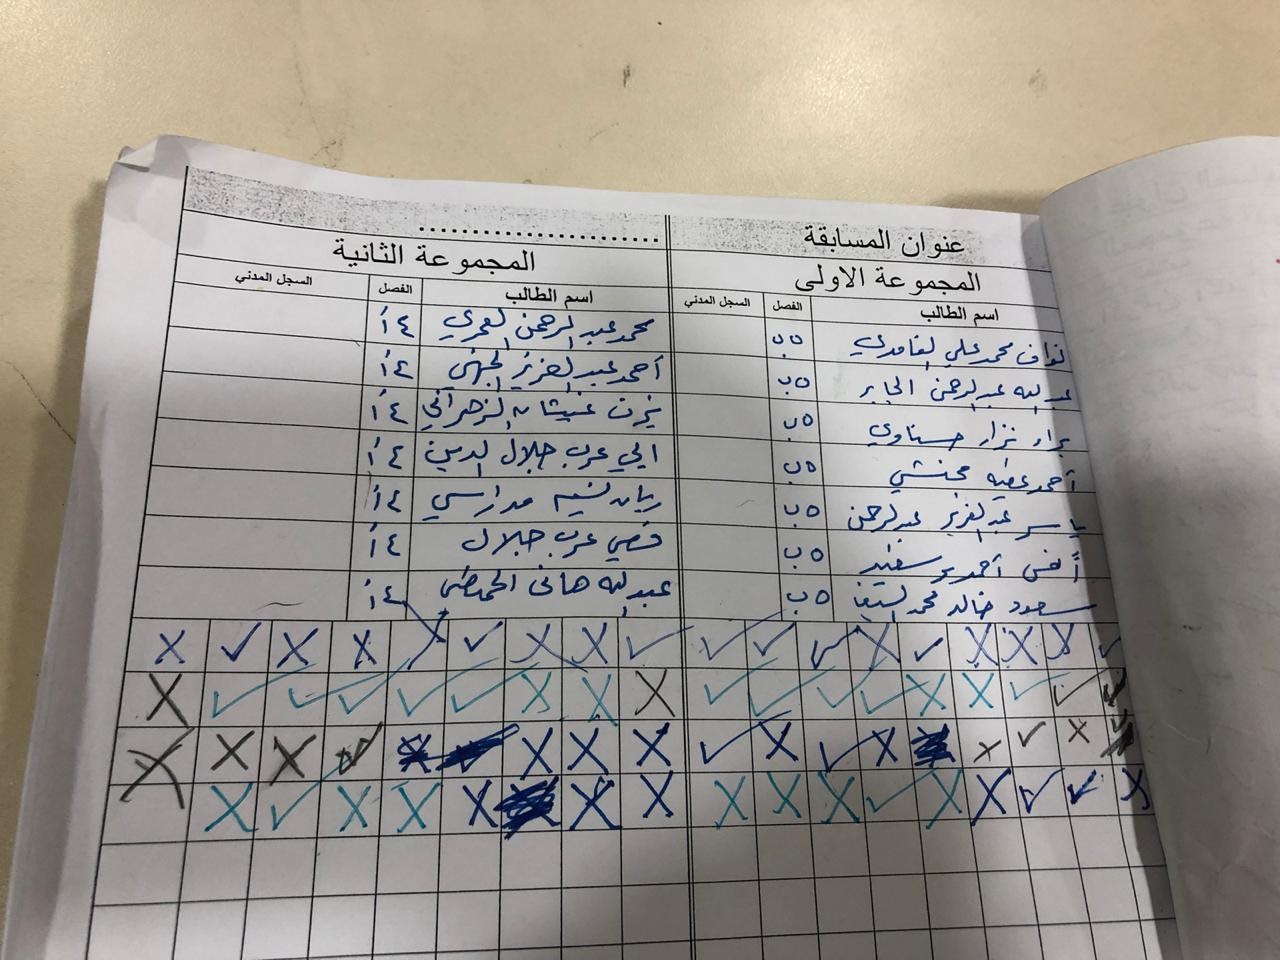 عنوان المسابقة .....................
المجموعة الاولى
اسم الطالب الفصل السجل المدني
نواف محمد علي الغامدي ٥ب
عبد الله عبدالرحمن الجابر ٥ب
براء نزار حسناوي ٥ب
أحمد عطيه ٥ب
ياسر عبدالعزيز عبدالرحمن ٥ب
أنس أحمد ٥ب
سعود خالد محمد ٥ب
المجموعة الثانية
اسم الطالب الفصل السجل المدني
محمد عبدالرحمن العمري ٤أ
أحمد عبدالعزيز الجهني ٤أ
الزهراني ٤أ
عرب جلال الدين ٤أ
ريان نسيم مدارسي ٤أ
قصي عرب جلال ٤أ
عبدالله هاني ٤أ